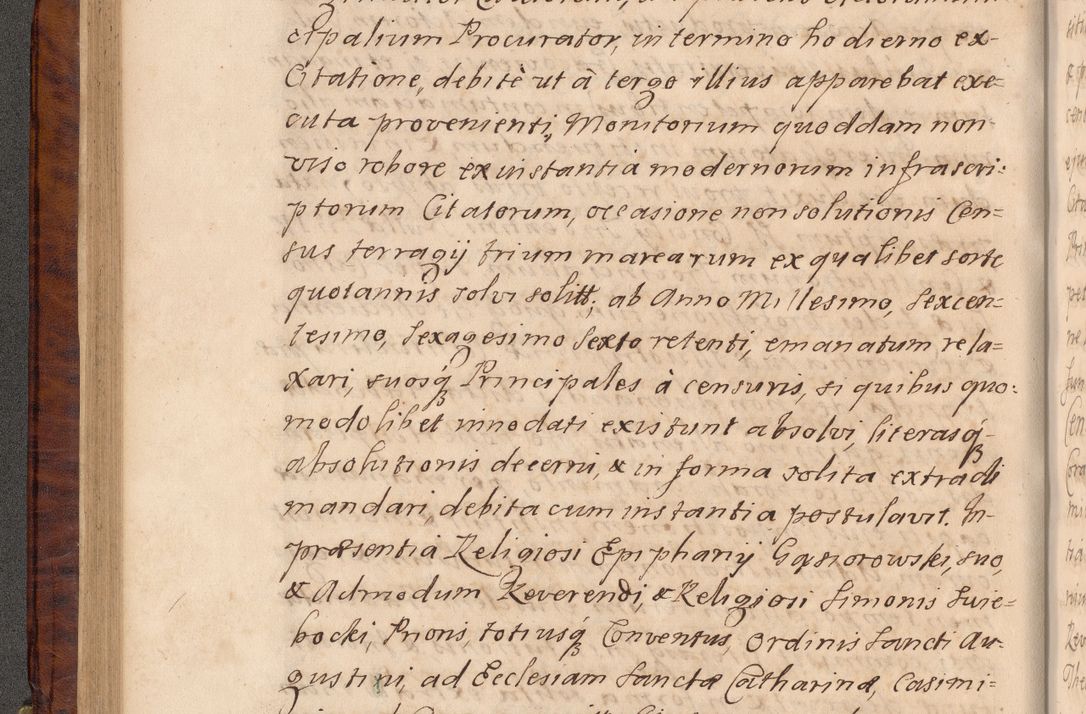 ctpalium Procurator, in termino hodierno ex=
Citatione, debitè ut à tergo illius apparebat exe=
cuta provenienti, Monitorium quoddam non
viso robore ex instantia modernorum infrascri=
ptorum Citatorum, occasione non solutionis Cen=
sus terragij trium marcarum ex qualibet sorte
quotannis solvi solitt; ab Anno Millesimo, Sexcen=
tesimo, Sexagesimo Sexto retenti, emanatum rela=
xari, suosq́ Principales à censuris, si quibus quo=
modolibet innodati existunt absolvi, literasq́
absolutionis decerni, & in forma solita extradi
mandari, debita cum instantia postulavit. In
præsentia Religiosi Epiphanij Gąsiorowski, suo,
& Admodum Reverendi, & Religiosi Simonis Swie=
bocki, Prioris, totiusq́ Conventus, Ordinis Sancti Au=
gustini, ad Ecclesiam Sanctæ Catharinæ, Casimi=